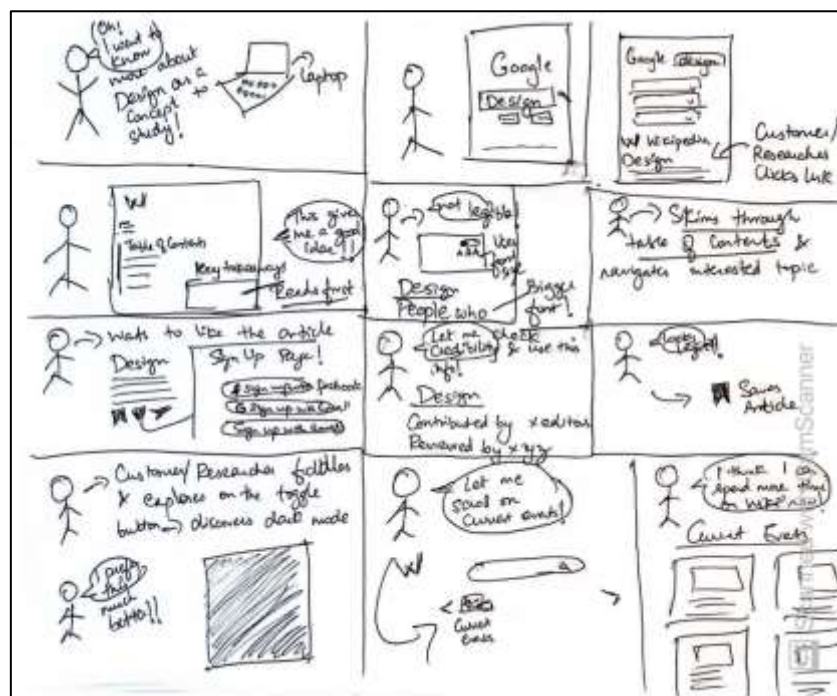 Oh!
I want to
know
more about
Design as a
concept to
study!
Laptop
Google
Design
Google design
W Wikipedia
Design
Customer/
Researcher
Clicks link
W
Table of Contents
Key takeaways
Reads first
This gives
me a good
idea!!
not legible!
Uses
font
size
Design
People who
Bigger
font!
Skims through
table of contents &
navigates interested topic
Wants to like the article
Design
Sign Up Page!
Sign up with facebook
G Sign up with Gmail
Sign up with email
Let me check
Credibility & use this
info!
Design
Contributed by x editors
Reviewed by x xyz
Looks
legit!!
Saves
Article
Customer/Researcher fiddles
& explores on the toggle
button → discovers dark mode
I prefer
this
much
better!!
Let me
scroll on
Current events!
W
Current
Events
I think I can
spend more time
on WIKI now!
Current Events
Scanned with CamScanner